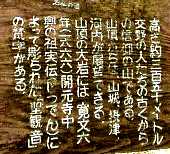 高さ約三百五十メートル
交野の人たちの古くから
の信仰の山である。
山頂に立つと山城、摂津、
河内が展望できる。
山頂の大岩には、寛文六
年(一六六六)開元寺中
興の祖実伝(じつでん)に
よって彫られた聖観音
の梵字がある。